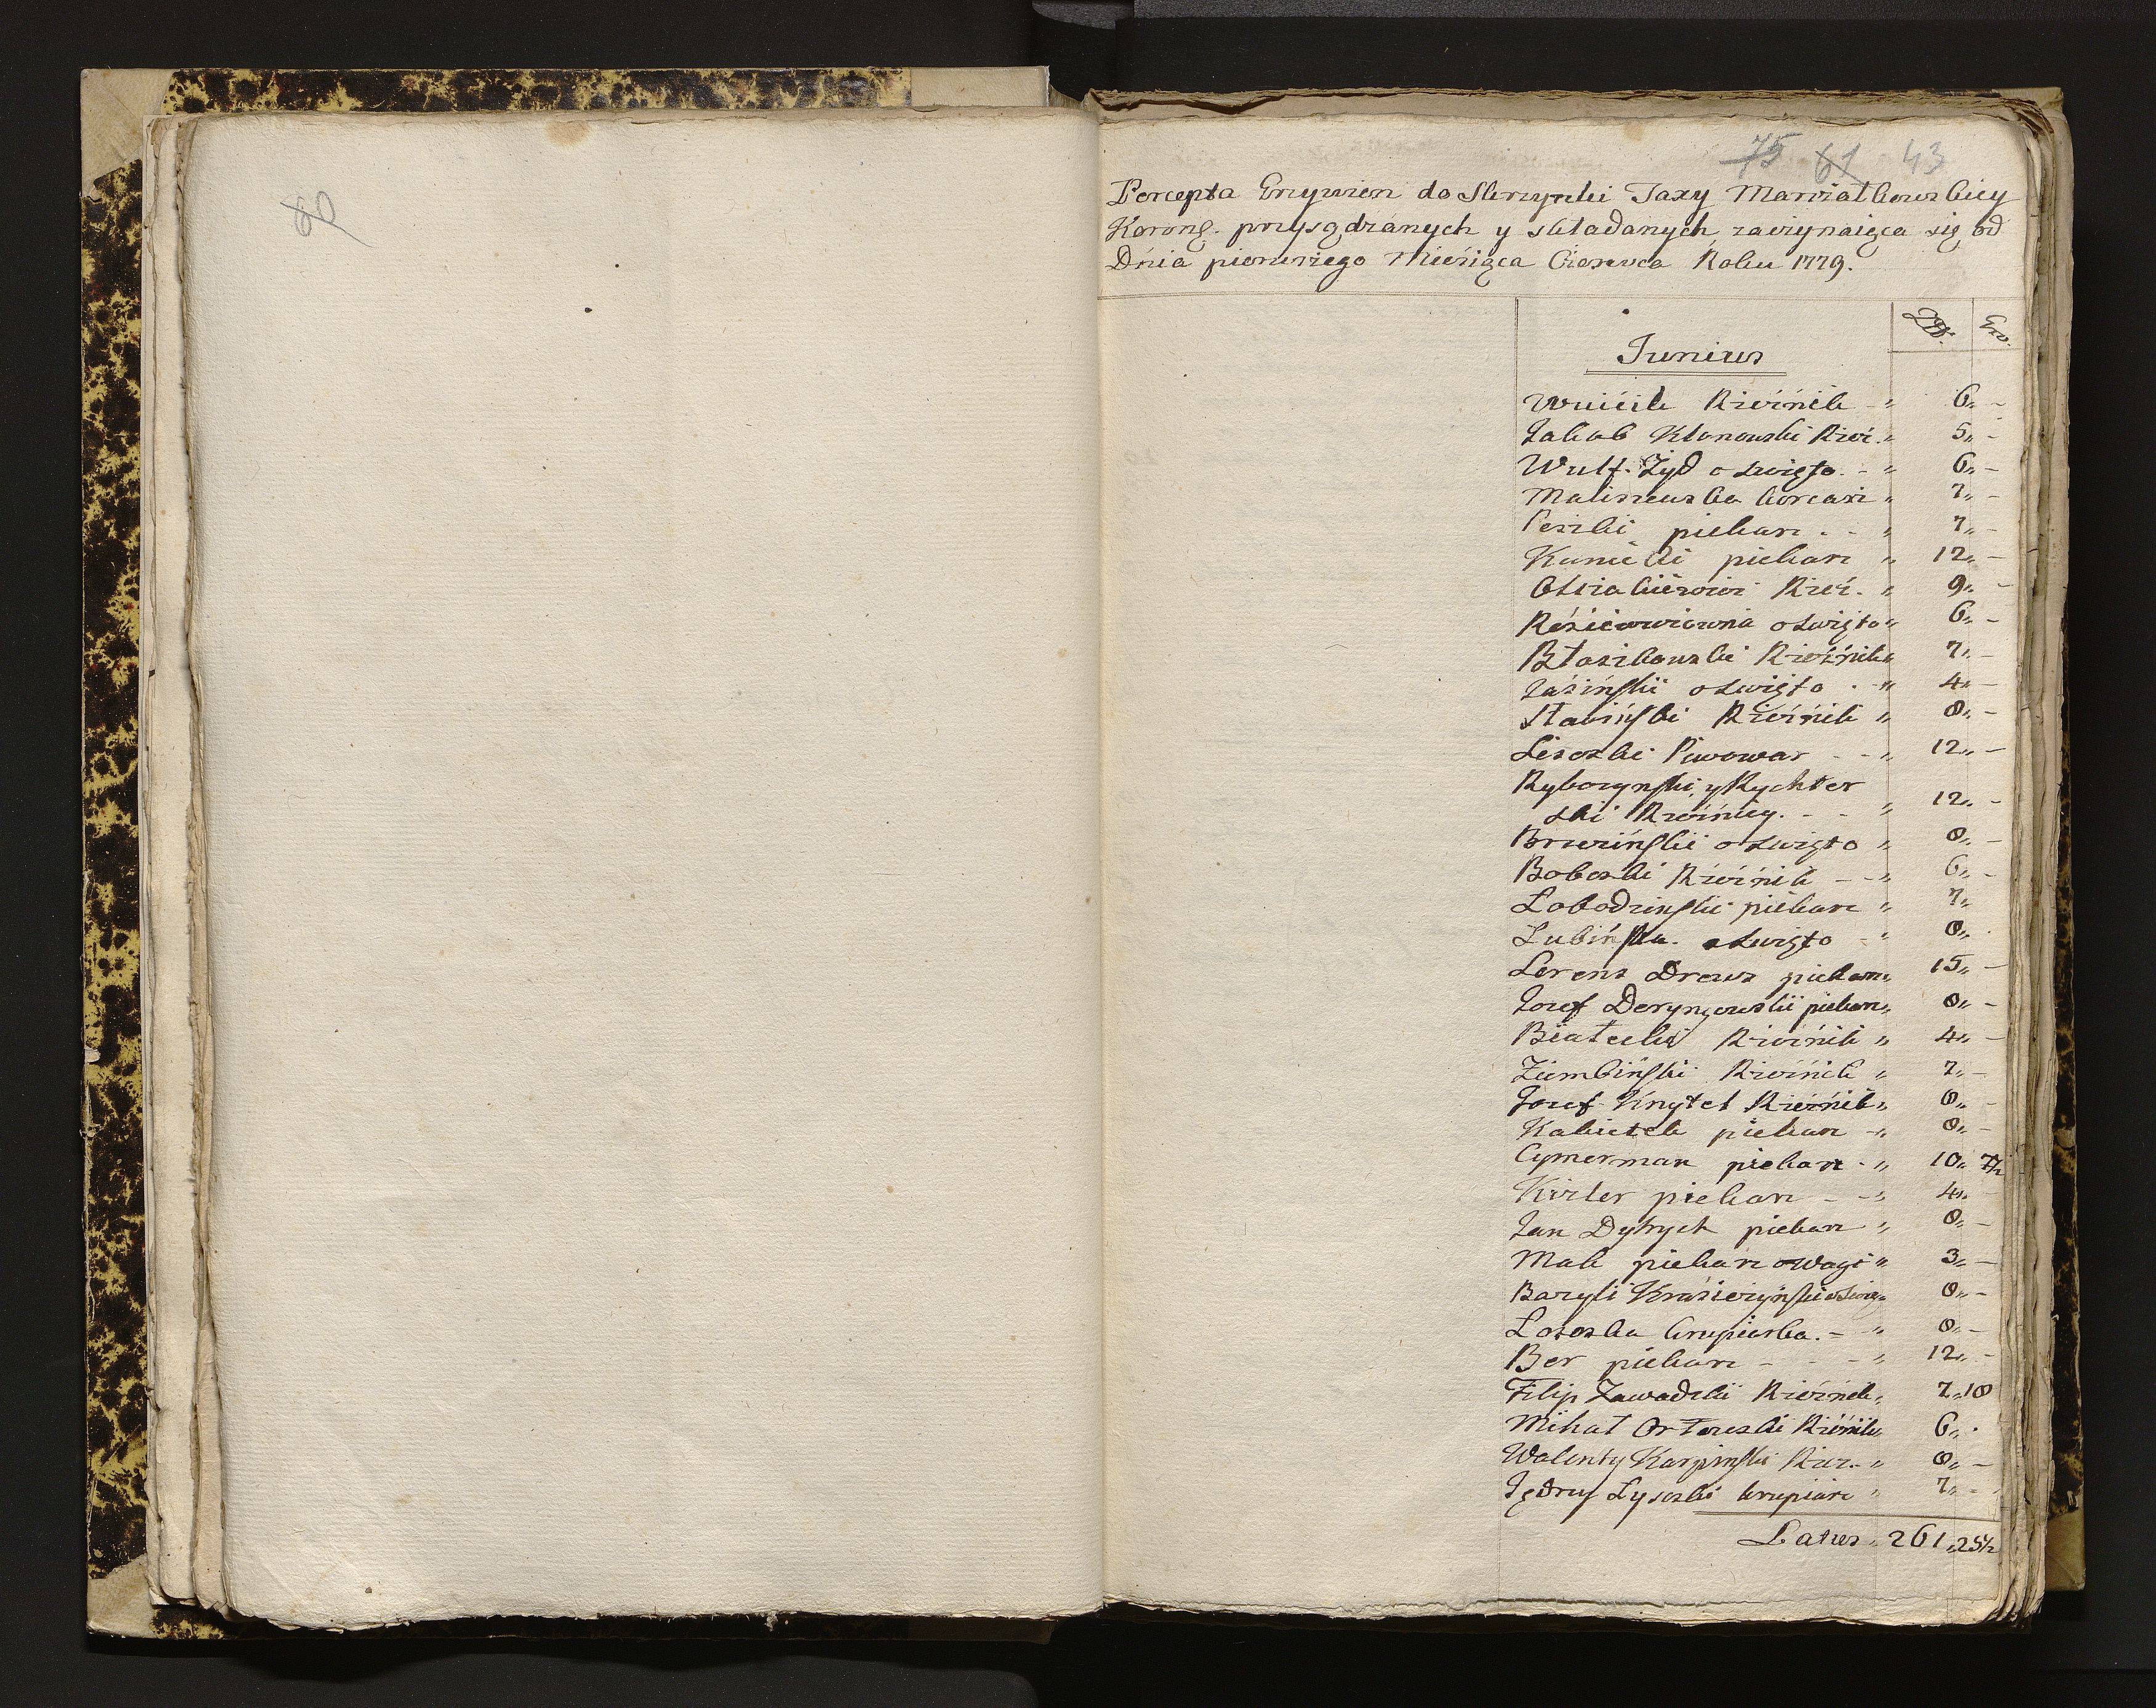 80
75 61 43
Percepta Grzywien do Skrzynki Taxy Marszałkowskiey
Koronę. przysądzanych y składanych zaczynaiąca się od
Dnia pierwszego Miesiąca Czerwca Roku 1779.
Zł. Gr.
Junius
Wuicik Rzeźnik „ 6„ –
Jakob Klonowski Rzeź. „ 5„ –
Wulf Żyd o swięto – „ 6„ –
Maliszewska „ 7„ –
Peszki piekarz . – „ 7„ –
Kunicki piekarz „ 12„ –
Rzeź. „ 9„ –
o swięto „ 6„ –
Błaszkowski Rzeźnik „ 7„ –
Jasinski o swięto . – „ 4„ –
Stawinski Rzeźnik „ 8„ –
Lisoski Piwowar – „ 12„ –
Ryboczynski y Rychter
ski Rzeźnicy. – – „ 12„ –
Brzezinski o swięto „ 8„ –
Boboski Rzeźnik – „ 6„ –
Lobodzinski piekarz „ 7„
Lubinska o swięto – „ 8„ .
Lorens Drews piekarz „ 15„ –
Jozef Deryngowski piekarz „ 8„ –
Białecki Rzeźnik „ 4„ –
Ziembinski Rzeźnik „ 7„ –
Jozef Knytel Rzeźnik „ 8„ –
Kabictek piekarz – „ 8„ –
Cymerman piekarz . „ 10„ 7½
Kitler piekarz – – „ 4„ –
Jan Dytrych piekarz „ 8„ –
Mak piekarz o wagi „ 3„ –
Bazyli Krasiczynski o swię „ 8„ –
Lososka krupiarka. – „ 8„ –
Ber piekarz – – – „ 12„ –
Filip Zawadzki Rzeźnik „ 7„ 18
Mihał Ortowski Rzeźnik „ 6„ .
Walenty Karpinski Rzez. – „ 8„ –
Jędrzy Lysoski krupiarz „ 7„ –
Latus „ 261„ 25½